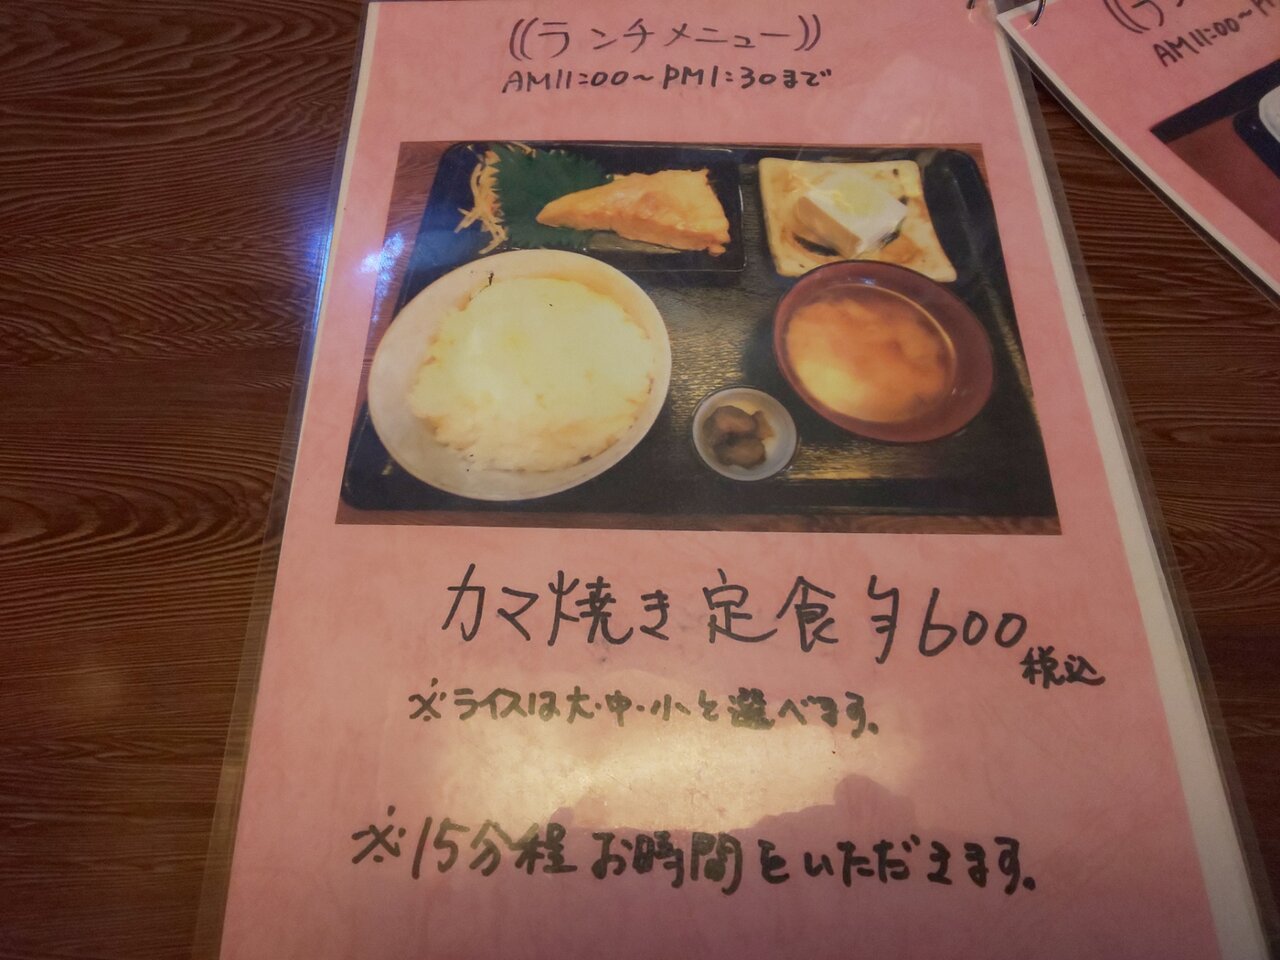 ((ランチメニュー))
AM11:00～PM1:30まで
カマ焼き定食 ¥600
税込
※ライスは大・中・小と選べます。
※15分程お時間をいただきます。
((ラン
AM11:00～P